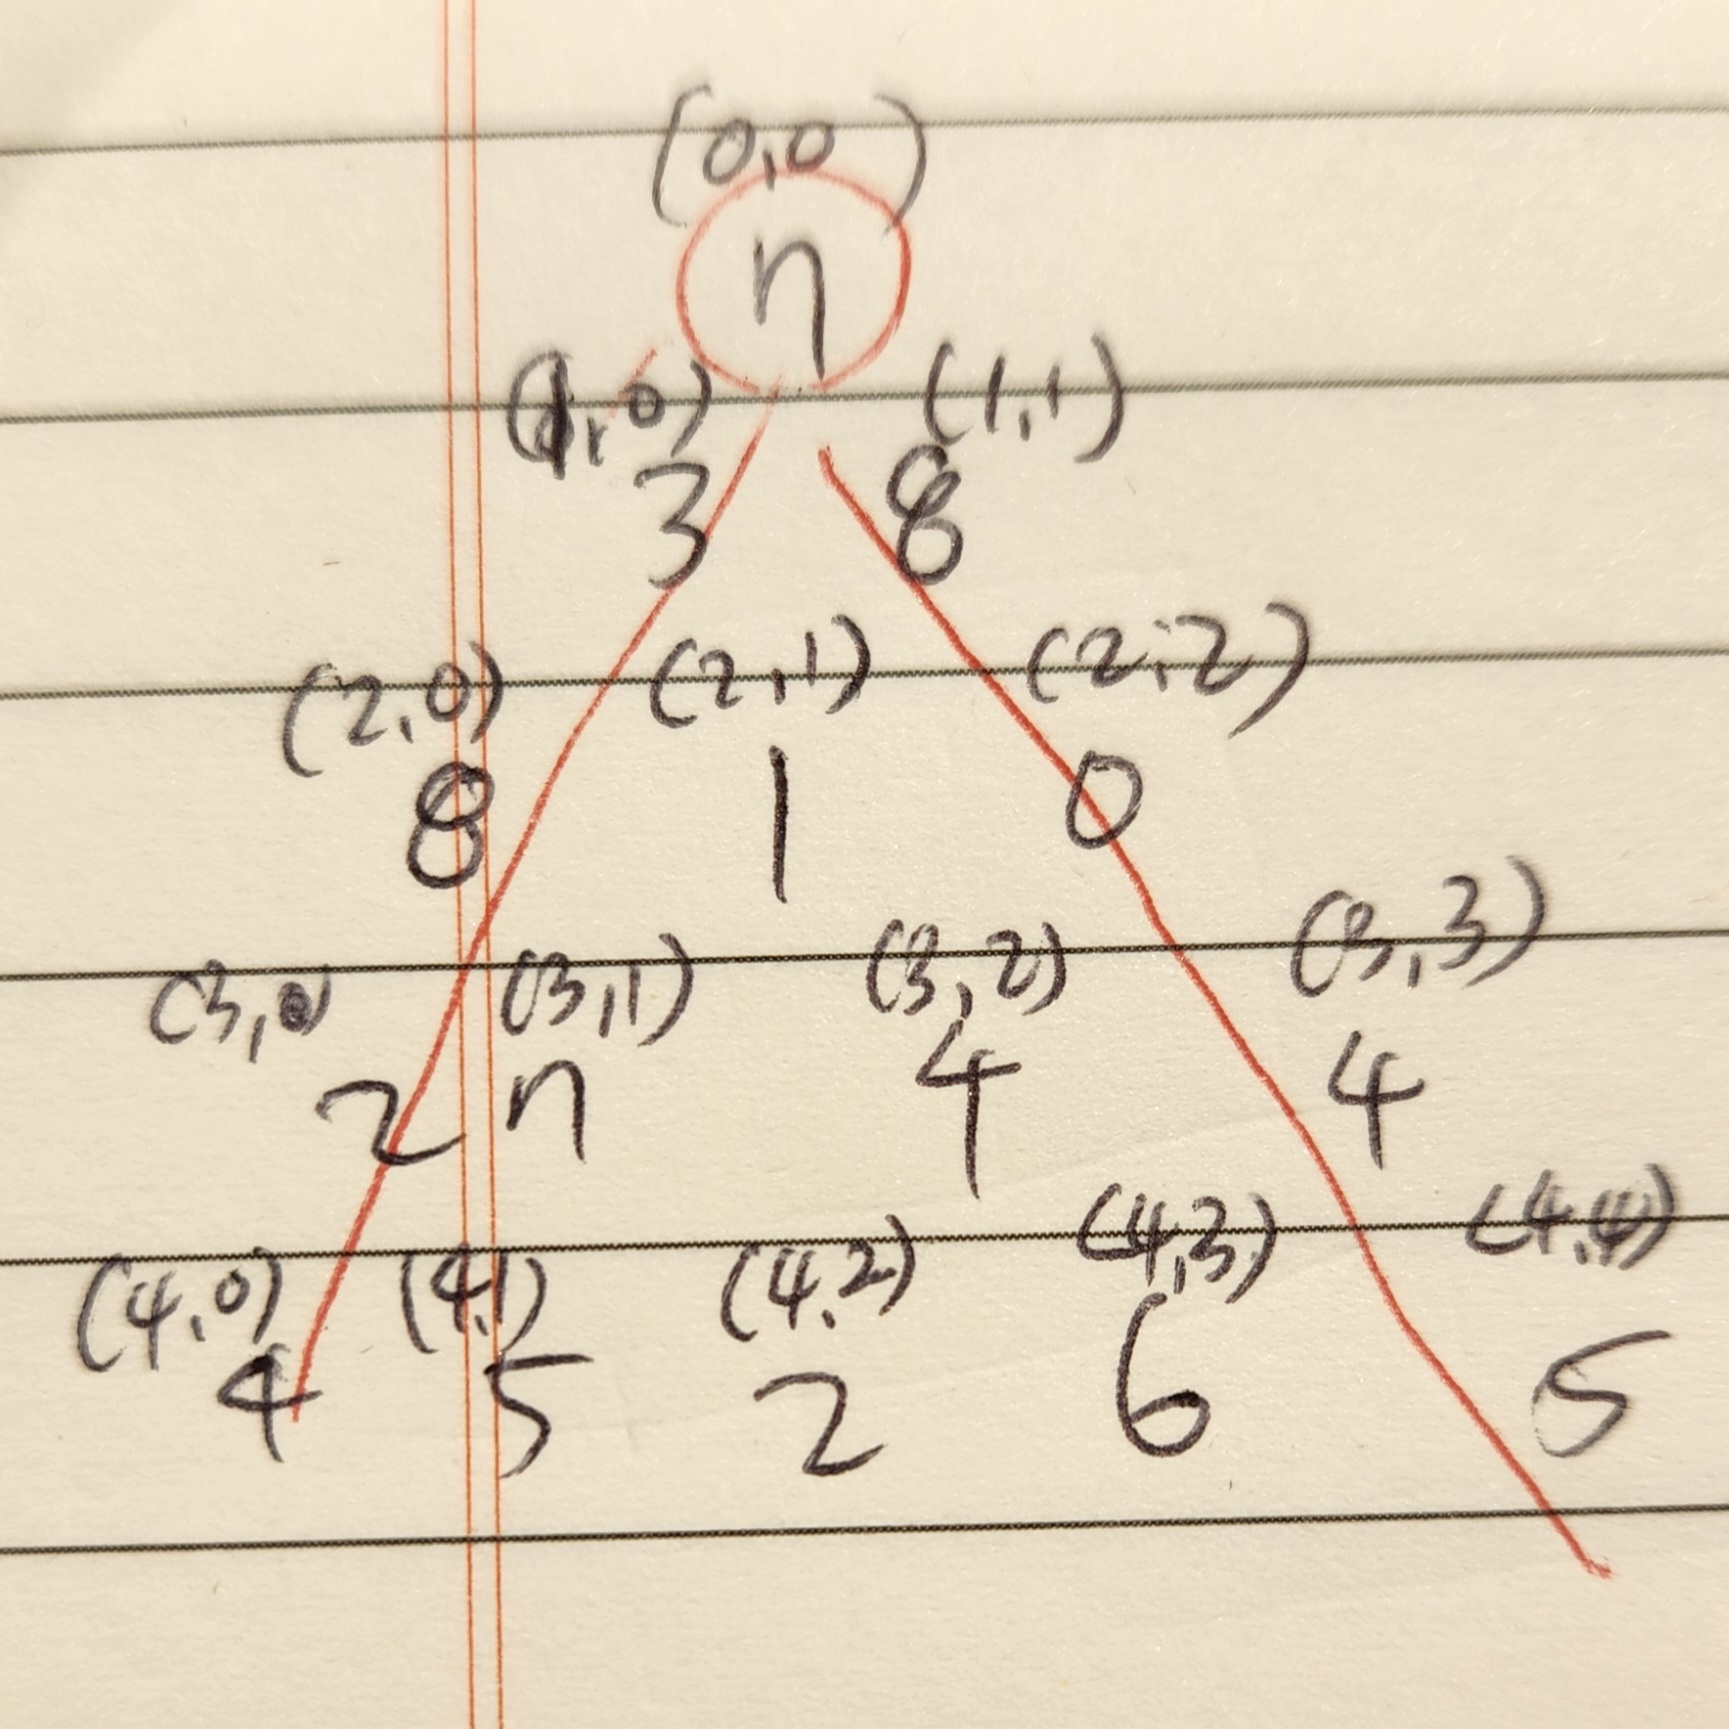 (0,0)
n
(1,0) (1,1)
3 8
(2,0) (2,1) (2,2)
8 1 0
(3,0) (3,1) (3,2) (3,3)
2 n 4 4
(4,0) (4,1) (4,2) (4,3) (4,4)
4 5 2 6 5